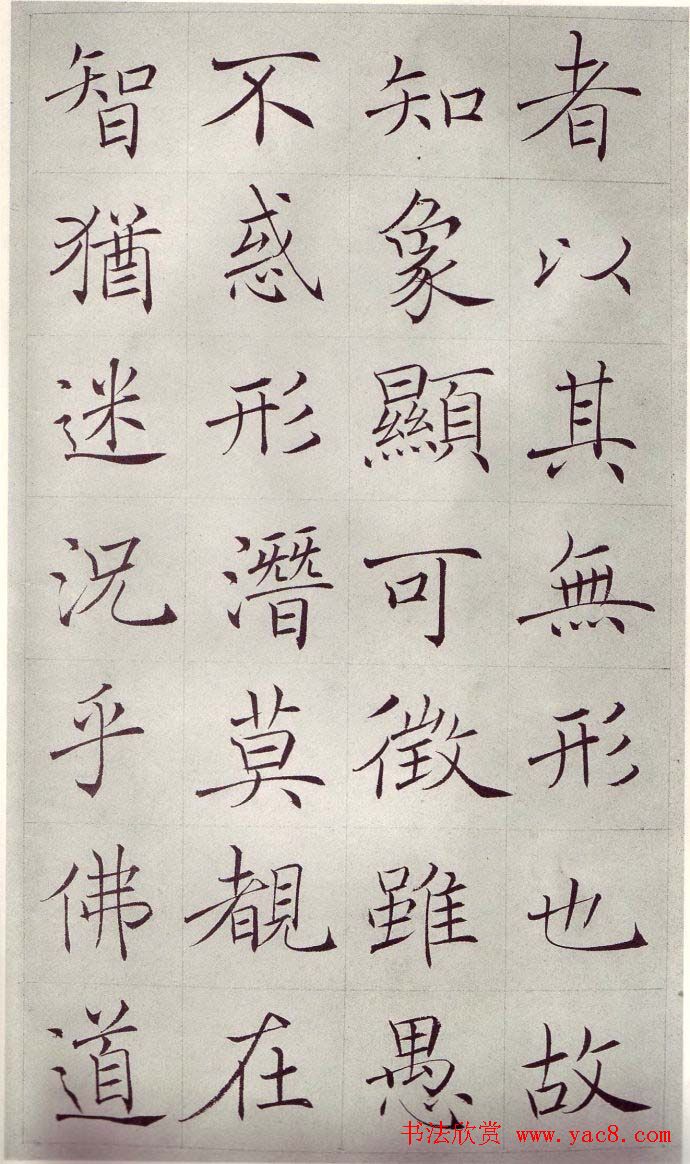 者以其無形也故
知象顯可徵雖愚
不惑形潛莫覩在
智猶迷況乎佛道
书法欣赏 www.yac8.com